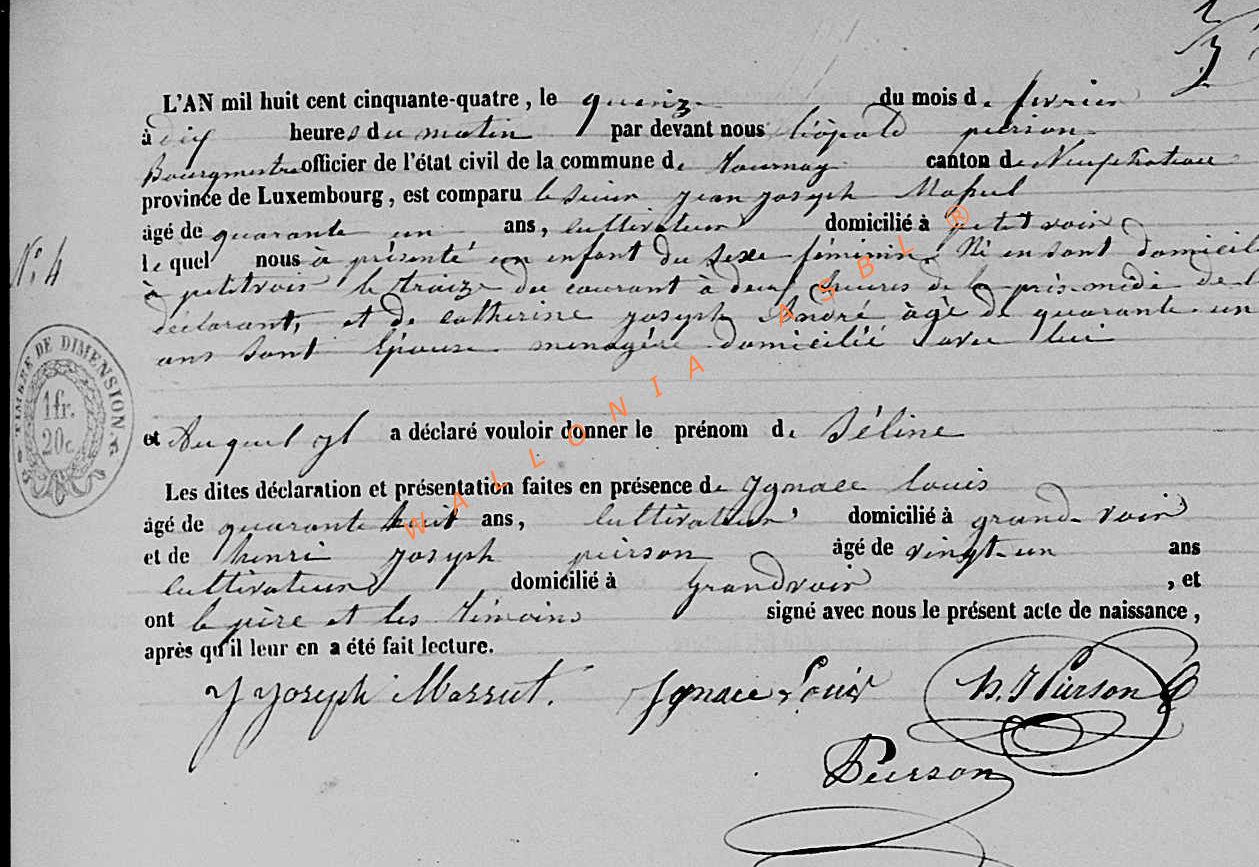 L'AN mil huit cent cinquante-quatre, le quinze du mois de fevrier
à dix heures du matin par devant nous léopold pierson
Bourgmestre officier de l'état civil de la commune de tournay canton de Neufchateau
province de Luxembourg, est comparu le sieur jean joseph Massul
âgé de quarante un ans, cultivateur domicilié à petitvoir
le quel nous à présenté un enfant du sexe féminin Né en sont domicil
N.° 4
à petitvoir le traize du courant à deux heures de la près-midi de l
déclarant, et de catherine joseph André âgé de quarante-un
ans sont Epouse menagère domicilié avec lui
TIMBRE DE DIMENSION
1 fr.
20 c.
et Auquel il a déclaré vouloir donner le prénom de Séline
Les dites déclaration et présentation faites en présence de Ygnace louis
âgé de quarante huit ans, cultivateur domicilié à grand-voir
et de henri joseph pierson âgé de vingt-un ans
cultivateur domicilié à Grandvoir, et
ont le père et les témoins signé avec nous le présent acte de naissance,
après qu'il leur en a été fait lecture.
J Joseph Massut. Ignace Louis h. J Pierson
Pierson
WALLONIA ASBL ®